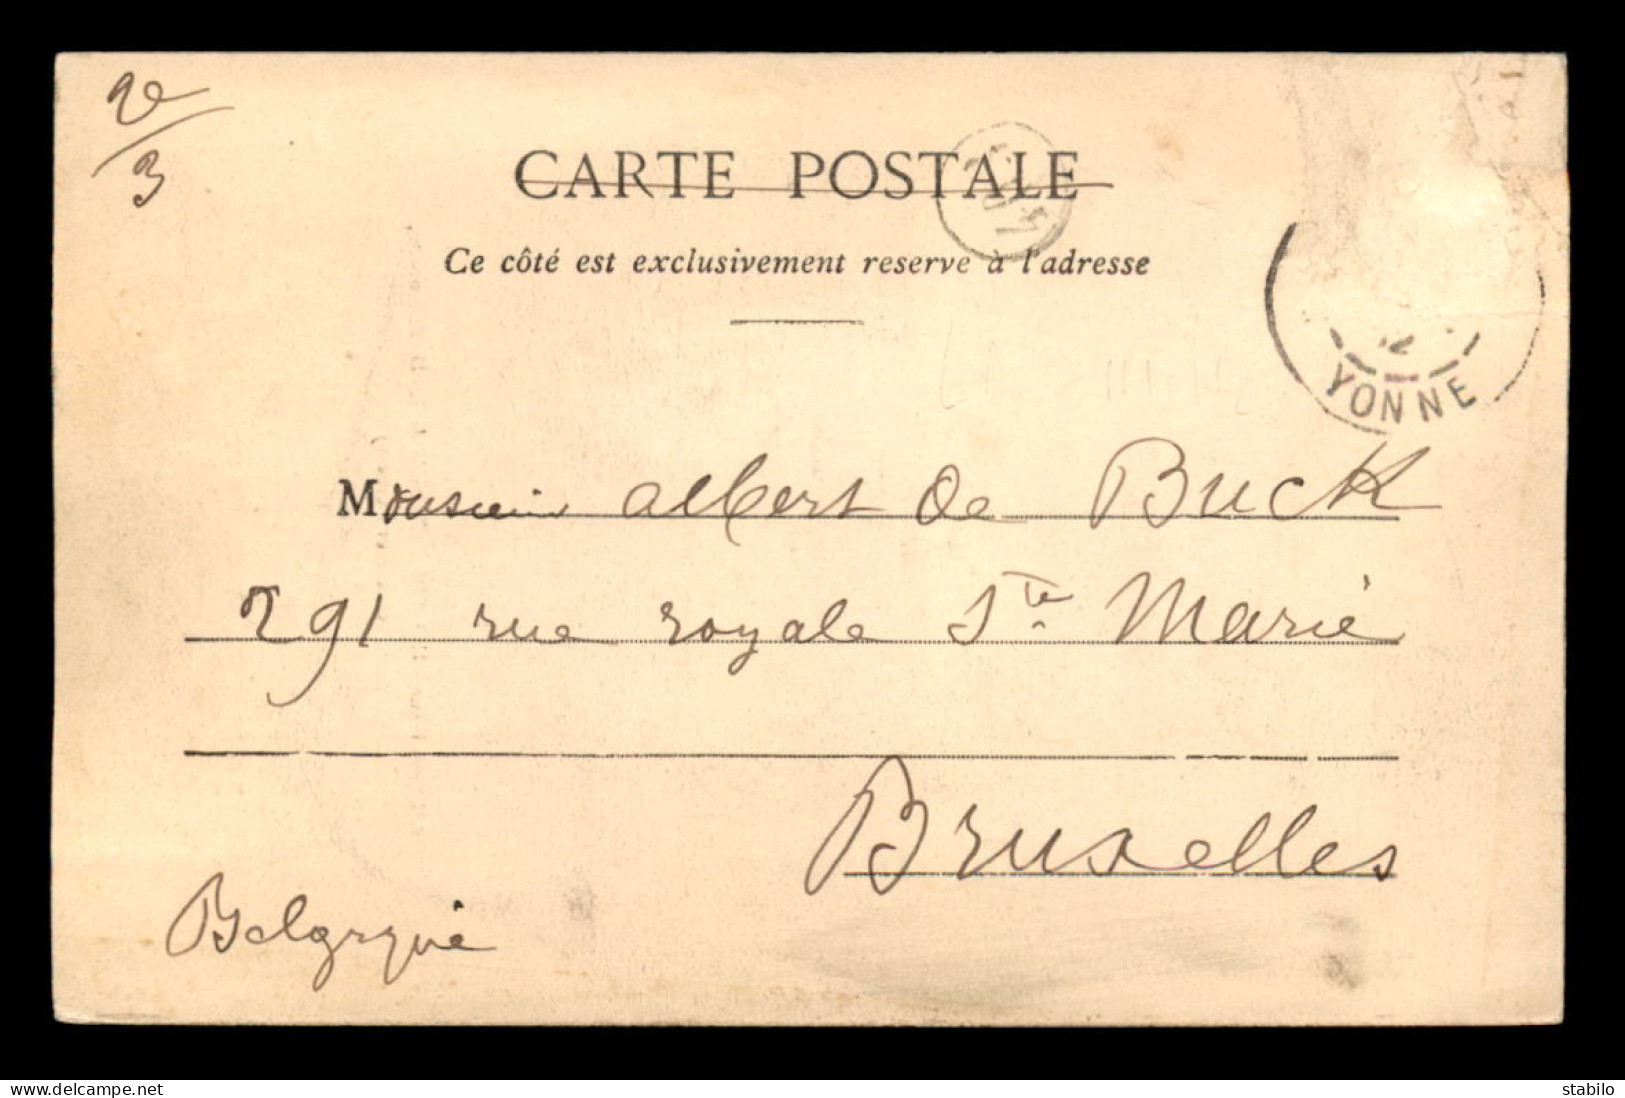 3
CARTE POSTALE
Ce côté est exclusivement reserve à l'adresse
YONNE
Monsieur Albert de Buck
291 rue royale Ste Marie
Bruxelles
Belgique
delcampe.net
stabilo